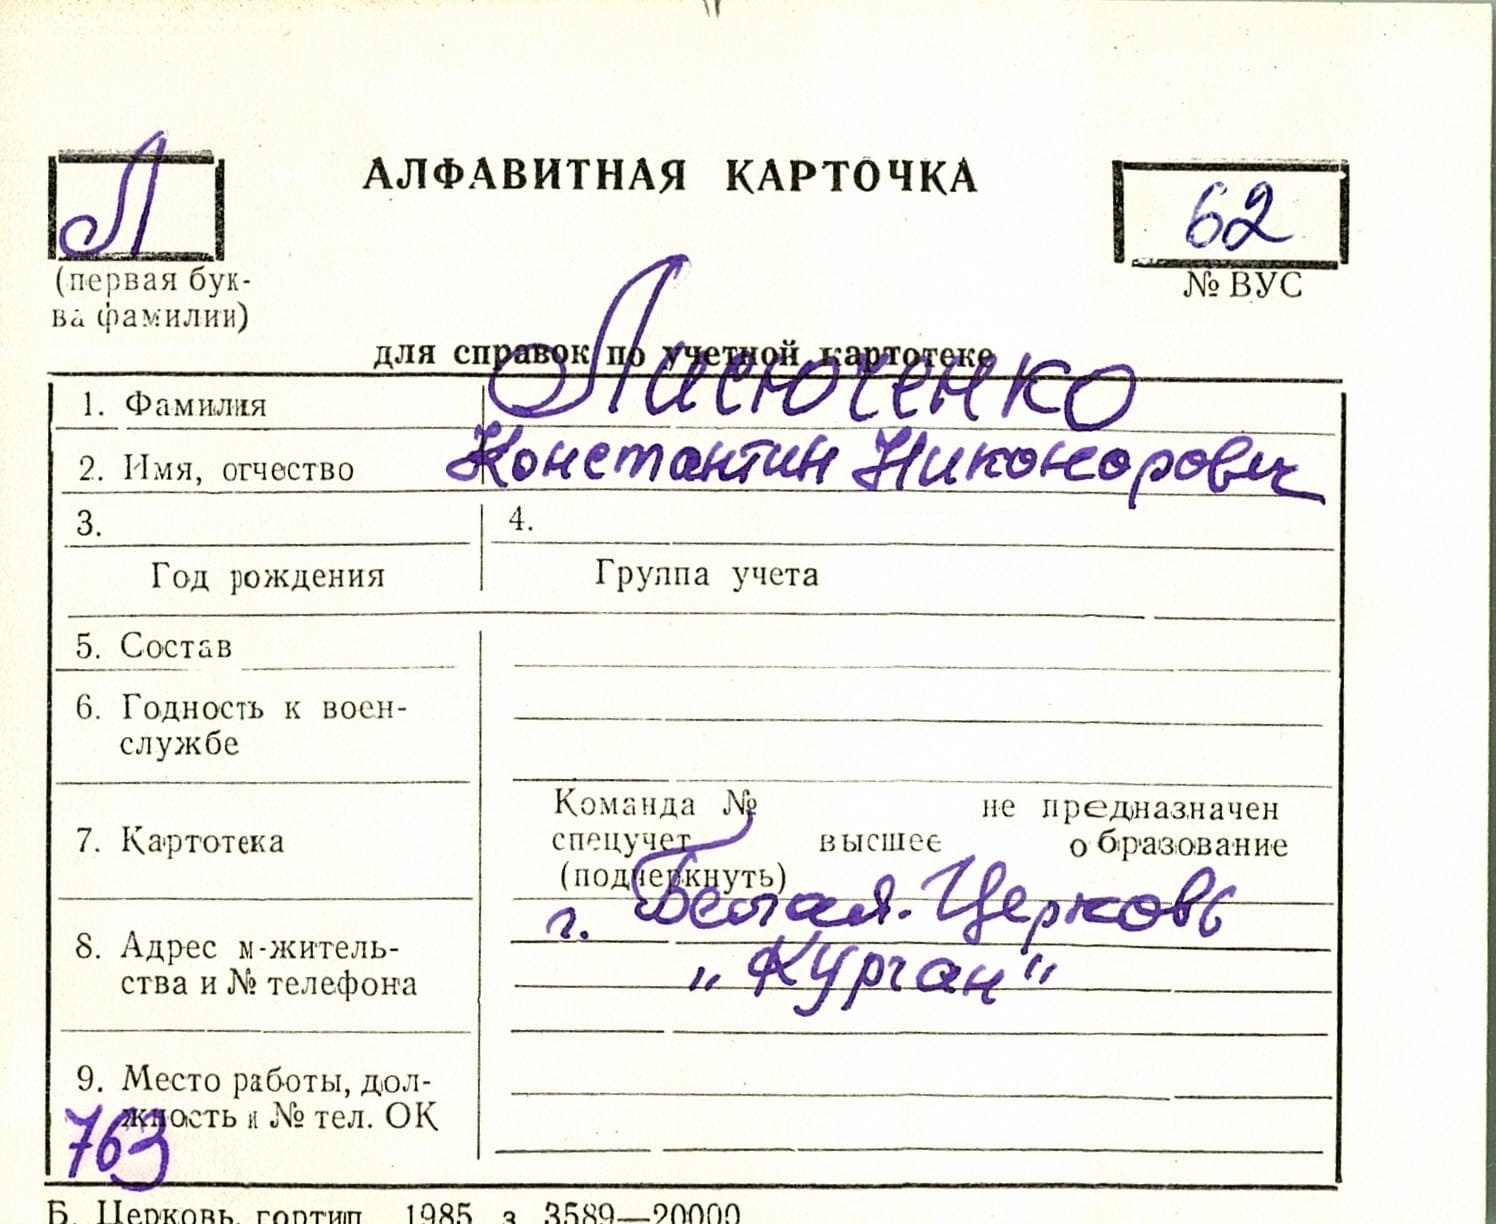 АЛФАВИТНАЯ КАРТОЧКА
Л
62
(первая бук-
ва фамилии)
№ ВУС
для справок по учетной картотеке
1. Фамилия Лисюченко
2. Имя, отчество Константин Никонорович
3. 4.
Год рождения Группа учета
5. Состав
6. Годность к воен-
службе
7. Картотека
Команда № не предназначен
спецучет высшее образование
(подчеркнуть)
8. Адрес м-житель-
ства и № телефона
г. Белая-Церковь
„Курган"
9. Место работы, дол-
жность и № тел. ОК
763
Б. Церковь, гортип. 1985 з. 3589—20000